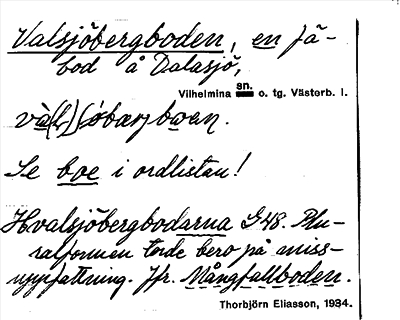 Valsjöbergboden, en fä-
bod å Dalasjö,
Vilhelmina sn. o. tg. Västerb. l.
Se boe i ordlistan!
Hvalsjöbergbodarna G48. Plu-
ralformen torde bero på miss-
uppfattning. Jfr. Mångfallboden.
Thorbjörn Eliasson, 1934.